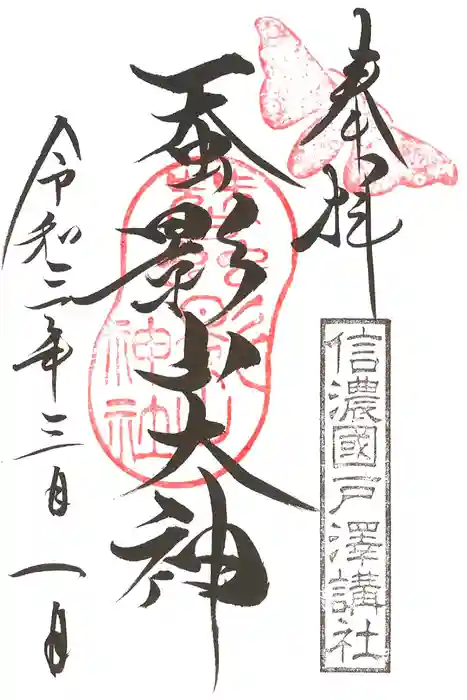 奉拝
信濃國戸澤講社
蚕影山大神
蚕影山神社
令和三年三月一日